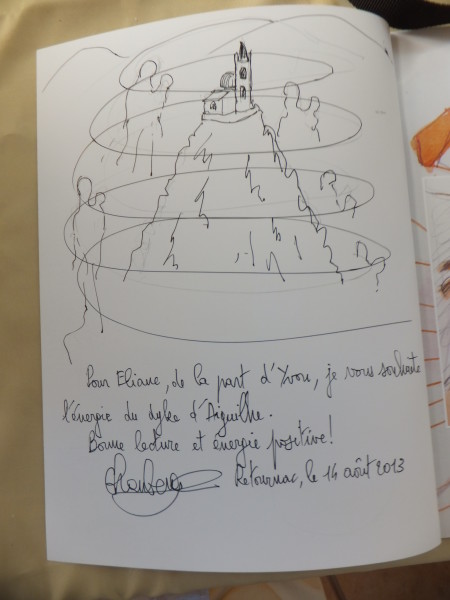 Pour Eliane, de la part d'Yvon, je vous souhaite
l'énergie du dyke d'Aiguilhe.
Bonne lecture et énergie positive!
Retournac, le 14 août 2013